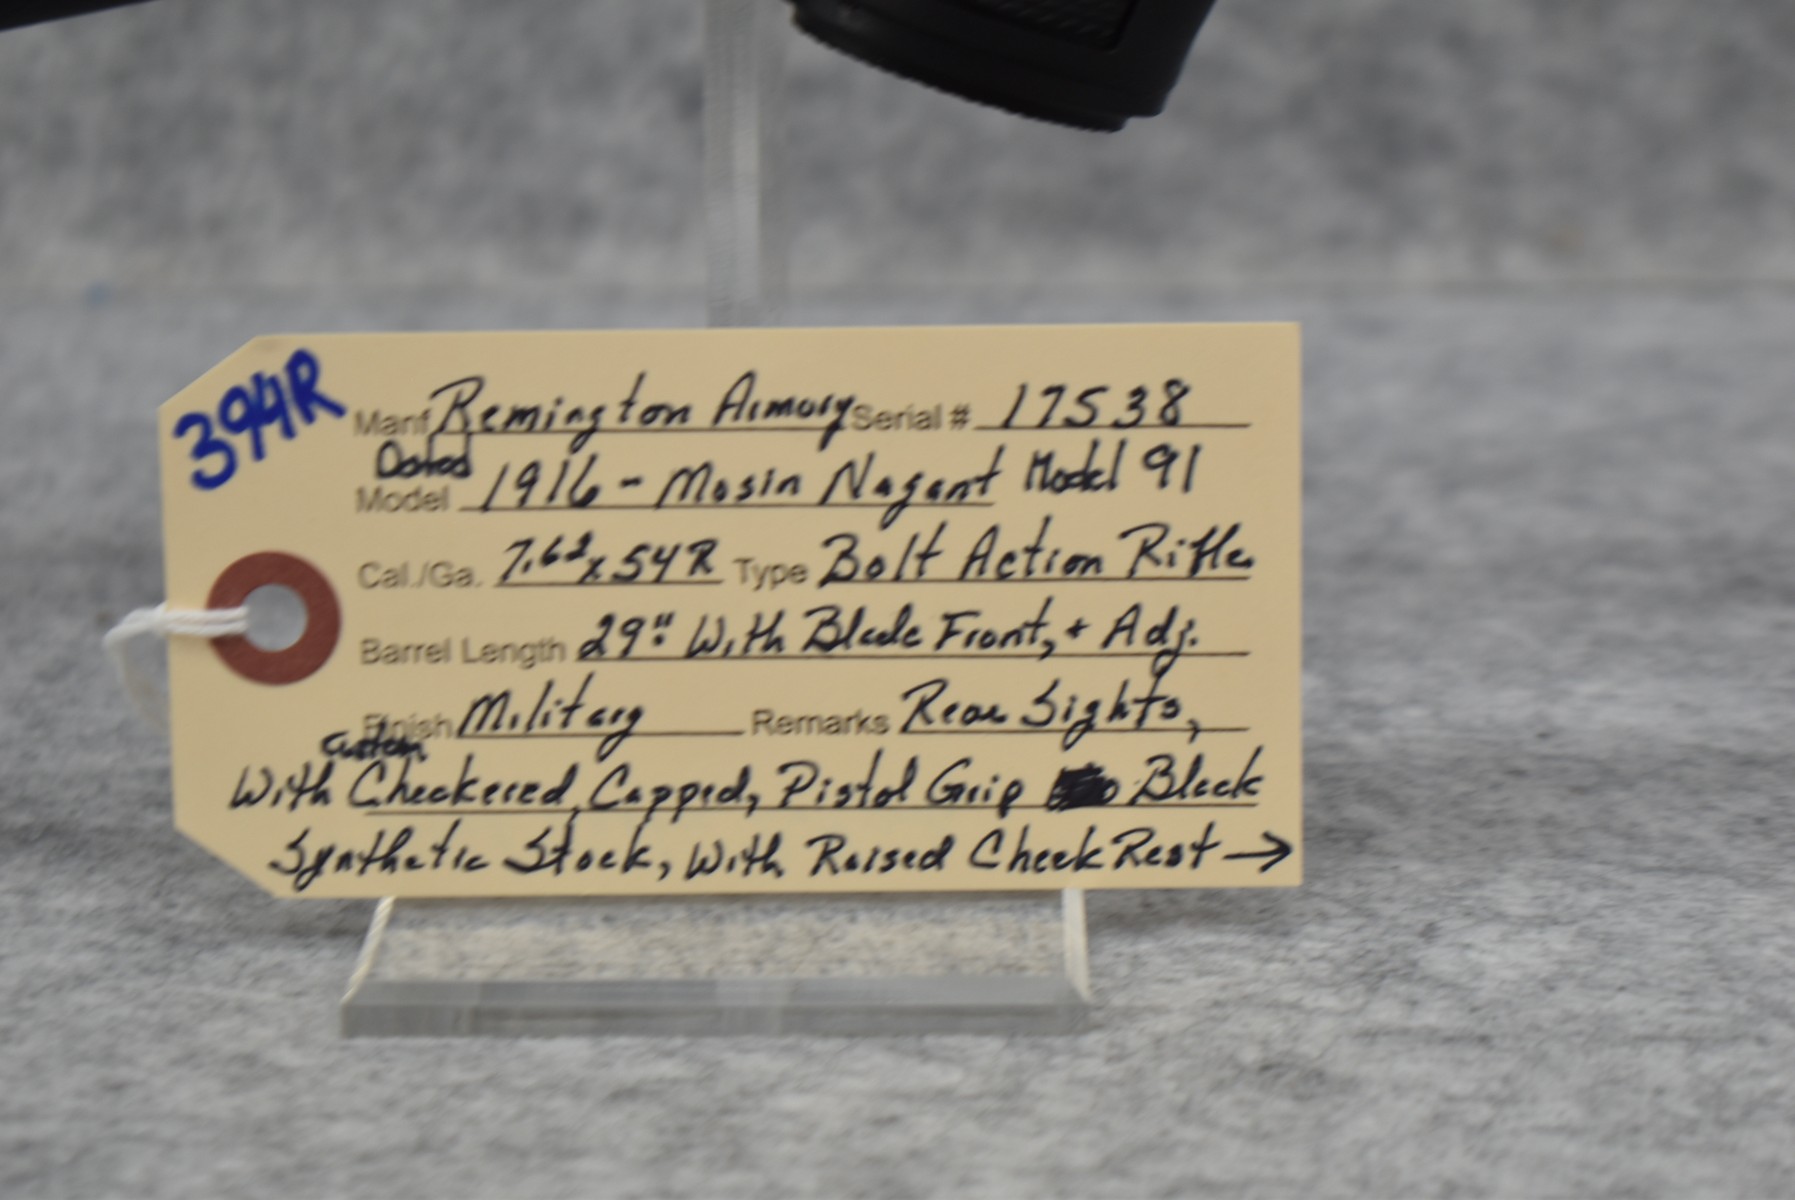 394R
Manf Remington Armory Serial # 17538
Dated
Model 1916 - Mosin Nagant Model 91
Cal./Ga. 7.62x54R Type Bolt Action Rifle
Barrel Length 29" With Blade Front, + Adj.
Finish Military Remarks Rear Sights,
Custom
With Checkered, Capped, Pistol Grip Black
Synthetic Stock, With Raised Cheek Rest →